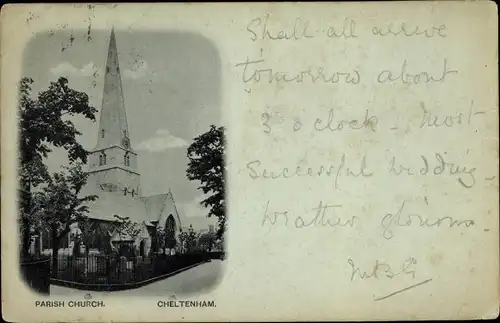 Shall all arrive
tomorrow about
3 o'clock - Most
Successful wedding
Weather glorious.
PARISH CHURCH. CHELTENHAM.